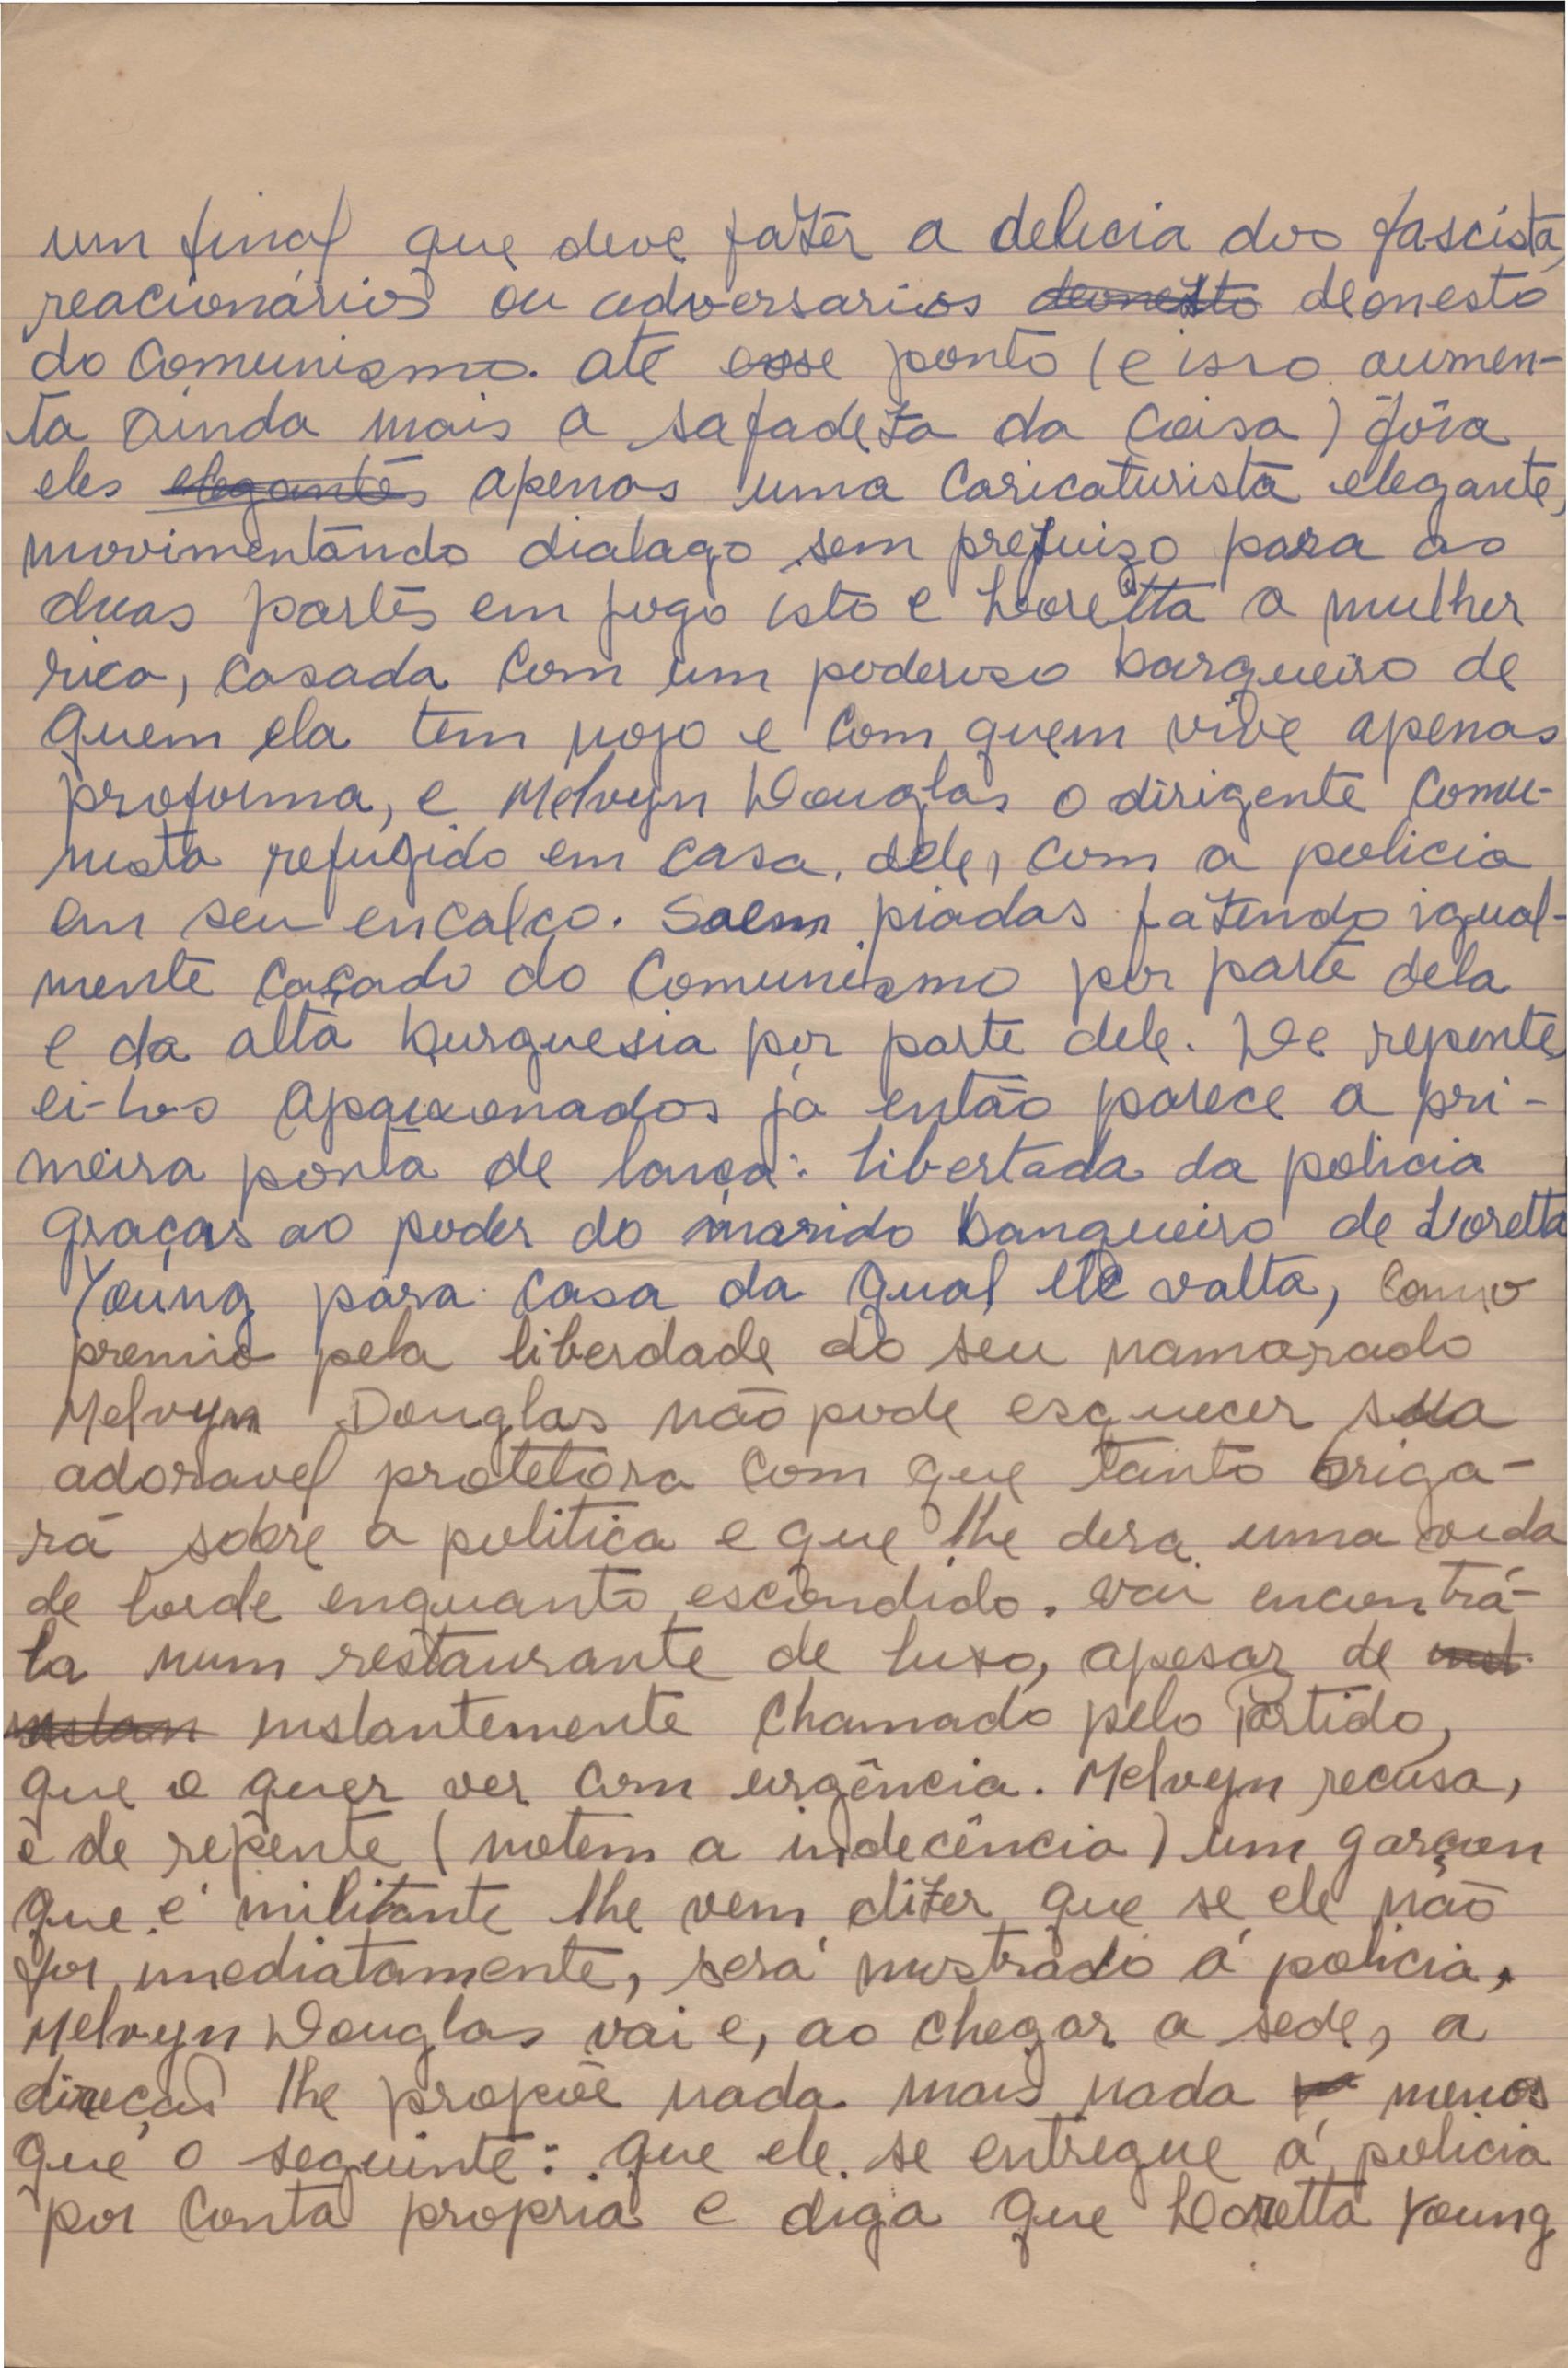 um final que deve fazer a delicia dos fascista,
reacionários ou adversarios deonesto deonesto
do Comunismo. até esse ponto (e isso aumen-
ta ainda mais a safadeza da Coisa) fôra
eles elegantes apenas uma Caricaturista elegante,
movimentando dialago sem prejuizo para as
duas partes em jogo isto e Loretta a mulher
rica, Casada Com um poderoso bargueiro de
quem ela tem nojo e Com quem vive apenas
proforma, e Melvyn Douglas o dirigente Comu-
nista refugido em Casa, dele, Com a policia
em seu encalço. Saem piadas fazendo igual-
mente Caçado do Comunismo por parte dela
e da alta burguesia por parte dele. De repente
ei-los apaixonados já então parece a pri-
meira ponta de lança: libertada da policia
graças ao poder do marido banqueiro de Loretta
Young para Casa da qual ele valta, Como
premio pela liberdade do seu namorado
Melvyn Douglas não pode esquecer sua
adoravel protetora Com que tanto briga-
rá sobre a politica e que lhe dera uma vida
de lorde enquanto escondido. vai encontrá-
la num restaurante de luxo, apesar de inst
instan instantemente Chamado pelo Partido,
que o quer ver Com urgência. Melvyn recusa,
e de repente (notem a indecência) um garçon
que é militante lhe vem dizer que se ele não
for imediatamente, será mostrado á policia,
Melvyn Douglas vai e, ao Chegar a sede, a
direção lhe propõe nada mais nada menos
que o seguinte: que ele se entregue á policia
por Conta propria e diga que Loretta Young